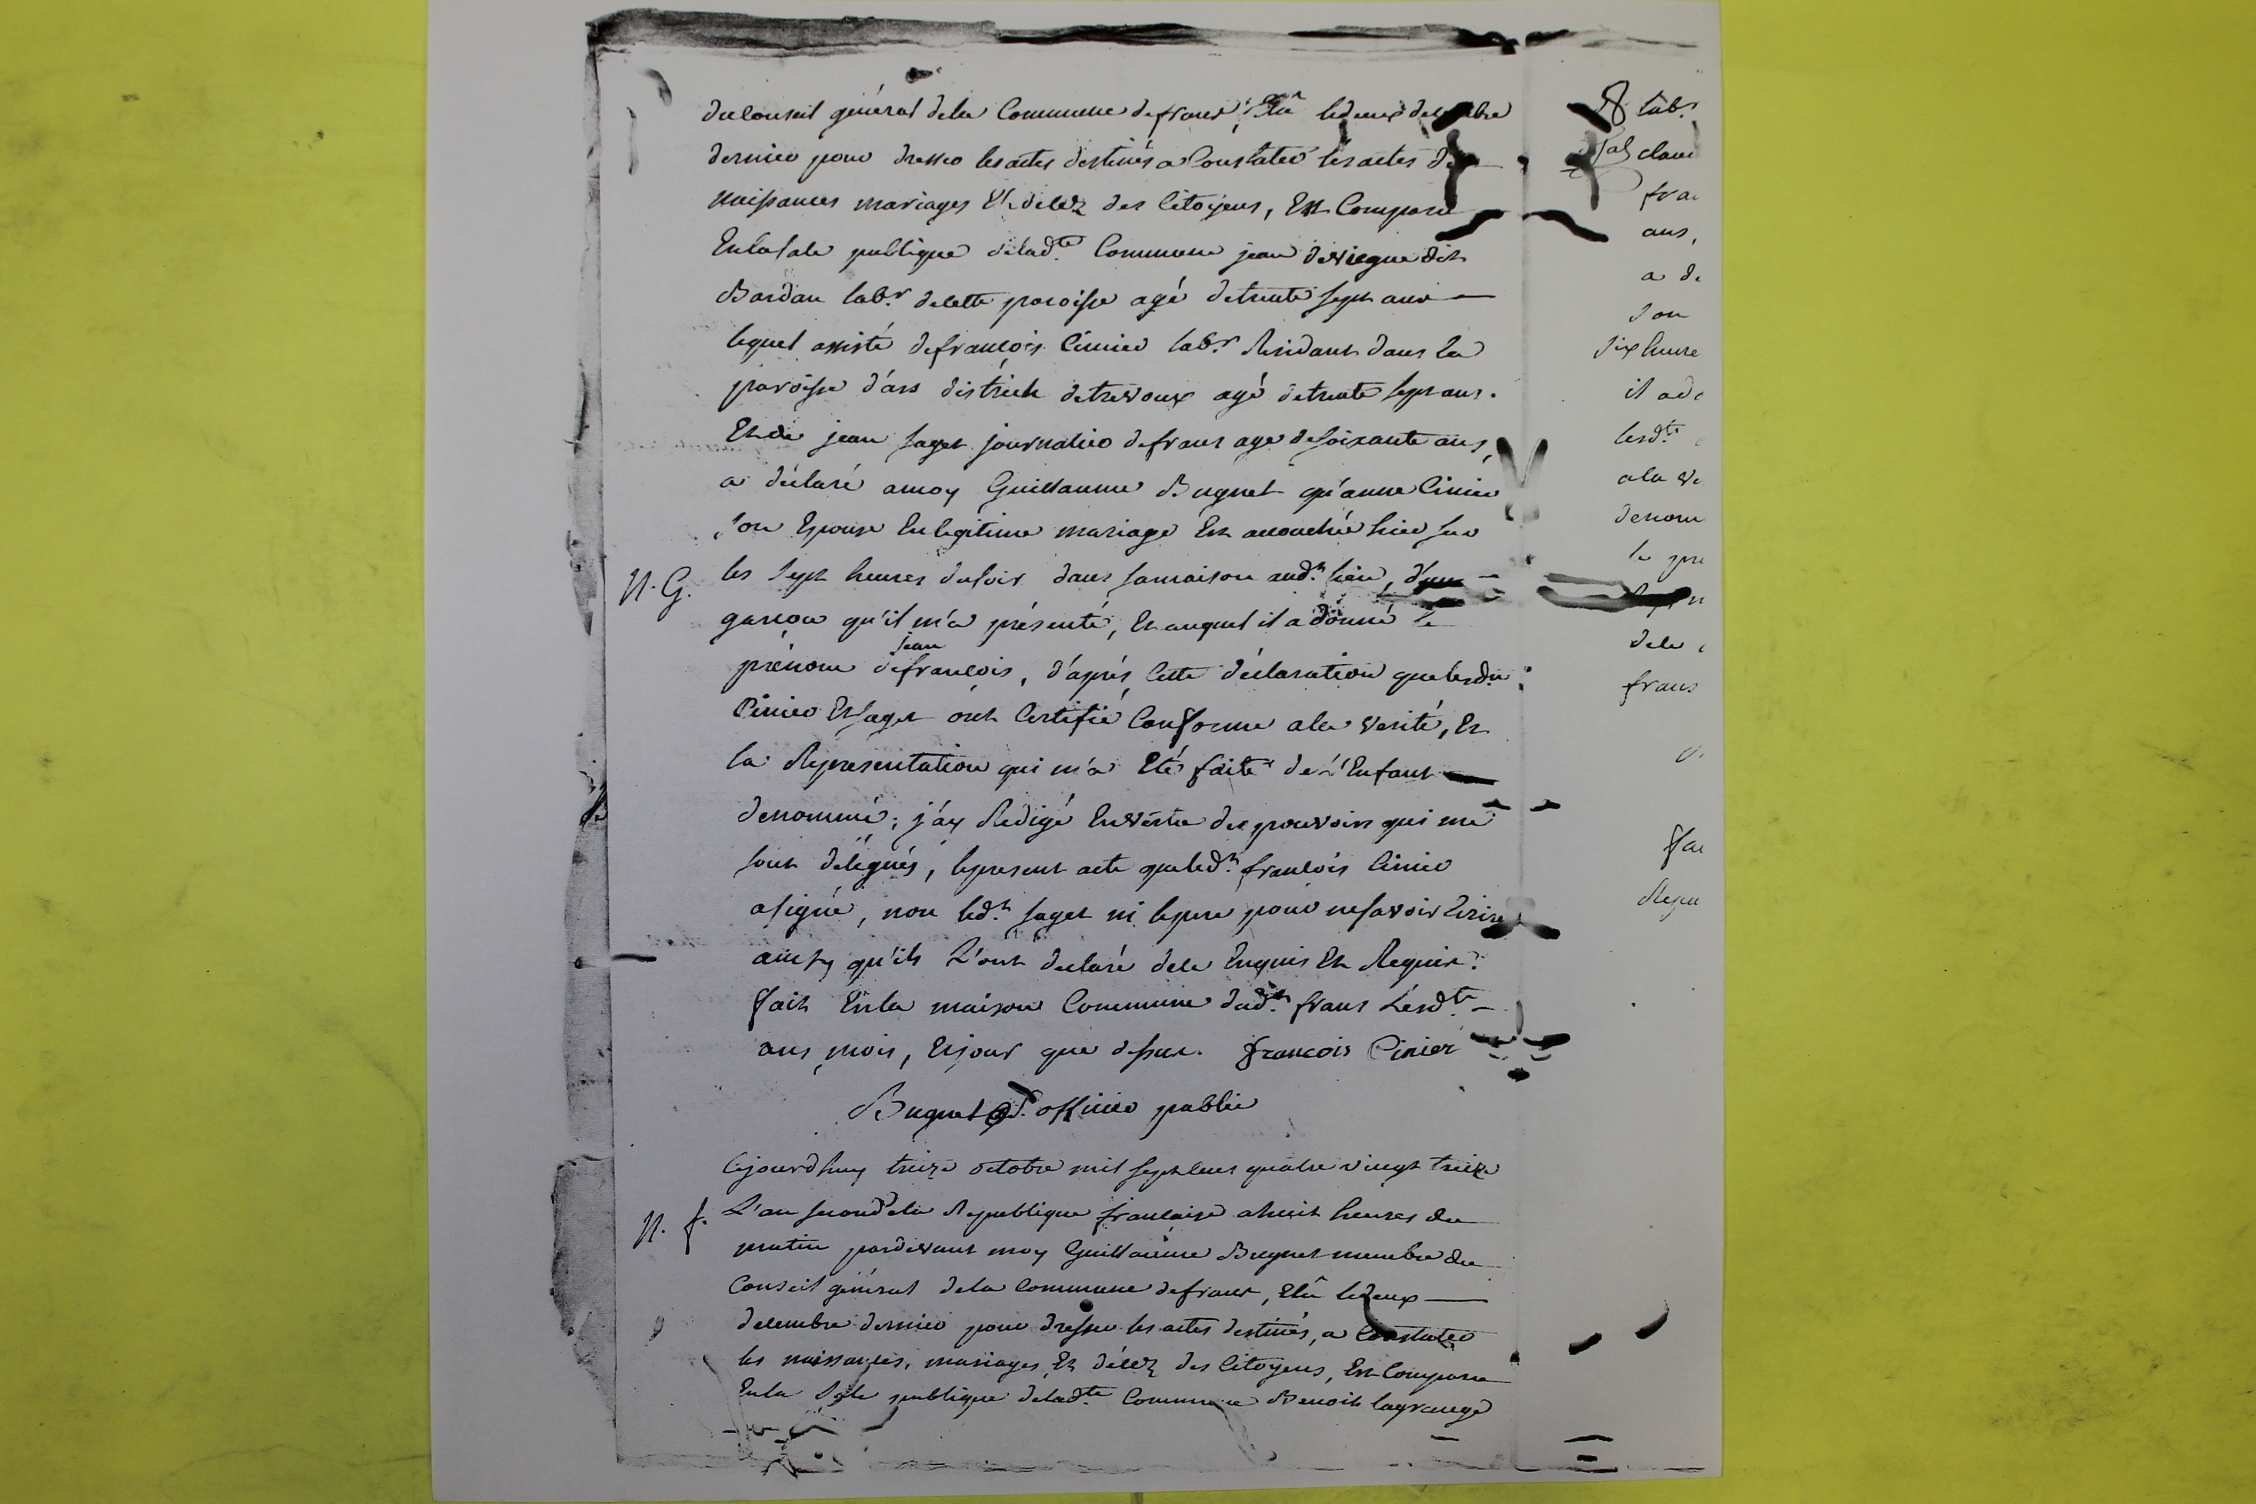 du Conseil général dela Commune de frans, Elû le deux decembre
dernier pour dresser les actes destinés a Constater les actes de
naissances mariages Et decez des Citoyens, Est Comparu
En la sale publique delad.te Commune jean
Bardau lab.r de cette paroisse agé de trente sept ans
lequel assisté de françois Cinier lab.r Residant dans la
paroisse d'ars district de trevoux agé de trente sept ans.
Et de jean saget journalier de frans age de soixante ans,
a déclaré a moy Guillaume Bugnet qu'anne Cinier
son Epouse En legitime mariage Est accouchée hier sur
N. G.
les sept heures du soir dans sa maison aud.t lieu, d'un
garcon qu'il m'a présenté, Et auquel il a donné le
jean
prénom de francois, d'aprés cette déclaration que lesd.
Cinier Et saget ont Certifié Conforme a la verité, Et
la Representation qui m'a Eté faite de L'Enfant
denommé; j'ay Redigé En vertu des pouvoirs qui me
sont délegués, le present acte que led.t francois Cinier
a signé, non led.t saget ni le pere pour ne savoir Ecrire
ainsy qu'ils L'ont declaré de ce Enquis Et Requis.
fait En la maison Commune dud.t frans Lesd.ts
ans, mois, Et jour que dessus. francois Cinier
Bugnet officier public
Cejourd'huy treize octobre mil sept cens quatre vingt treize
N. f.
L'an second de la Republique francaise a huit heures du
matin pardevant moy Guillaume Bugnet membre du
Conseil général dela Commune de frans, Elû le deux
decembre dernier pour dresser les actes destinés, a Constater
les naissances, mariages, Et décez des Citoyens, Est Comparu
En la sale publique delad.te Commune Benoit lagrange
lab.r
clau
fra
ans,
a de
son
six heure
il a d
lesd.ts
a la ve
denom
le pre
dela
frans
fai
Requ